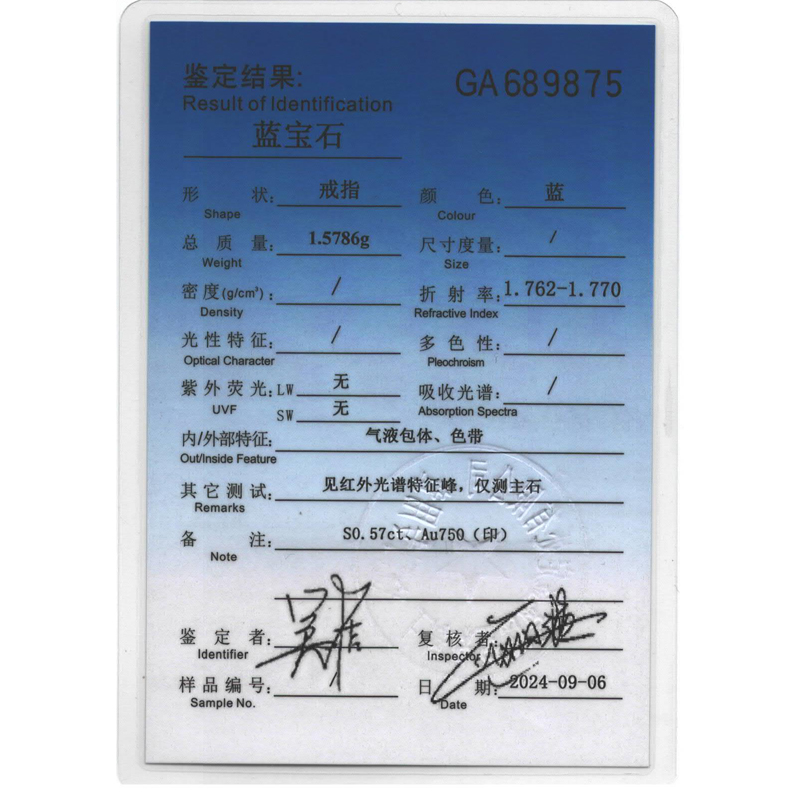 鉴定结果: GA689875
Result of Identification
蓝宝石
形状: 戒指 颜色: 蓝
Shape Colour
总质量: 1.5786g 尺寸度量: /
Weight Size
密度(g/cm³): / 折射率: 1.762-1.770
Density Refractive Index
光性特征: / 多色性: /
Optical Character Pleochroism
紫外荧光: LW 无 吸收光谱: /
UVF SW 无 Absorption Spectra
内/外部特征: 气液包体、色带
Out/Inside Feature
其它测试: 见红外光谱特征峰，仅测主石
Remarks
备注: S0.57ct、Au750（印）
Note
鉴定者: 复核者:
Identifier Inspector
样品编号: 日期: 2024-09-06
Sample No. Date